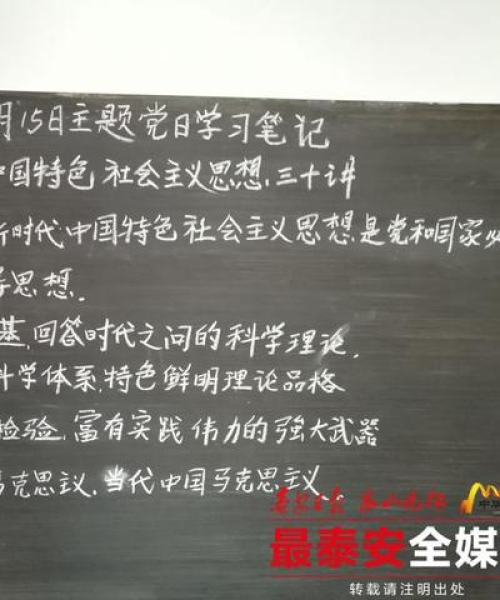 月15日主题党日学习笔记
中国特色社会主义思想.三十讲
时代中国特色社会主义思想是党和国家必
思想.
基.回答时代之问的科学理论.
科学体系.特色鲜明理论品格
检验.富有实践伟力的強大武器
马克思主义.当代中国马克思主义.
最泰安全媒
转载请注明出处